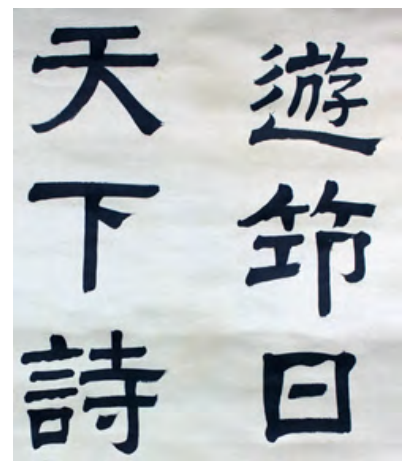 遊筇日
天下詩